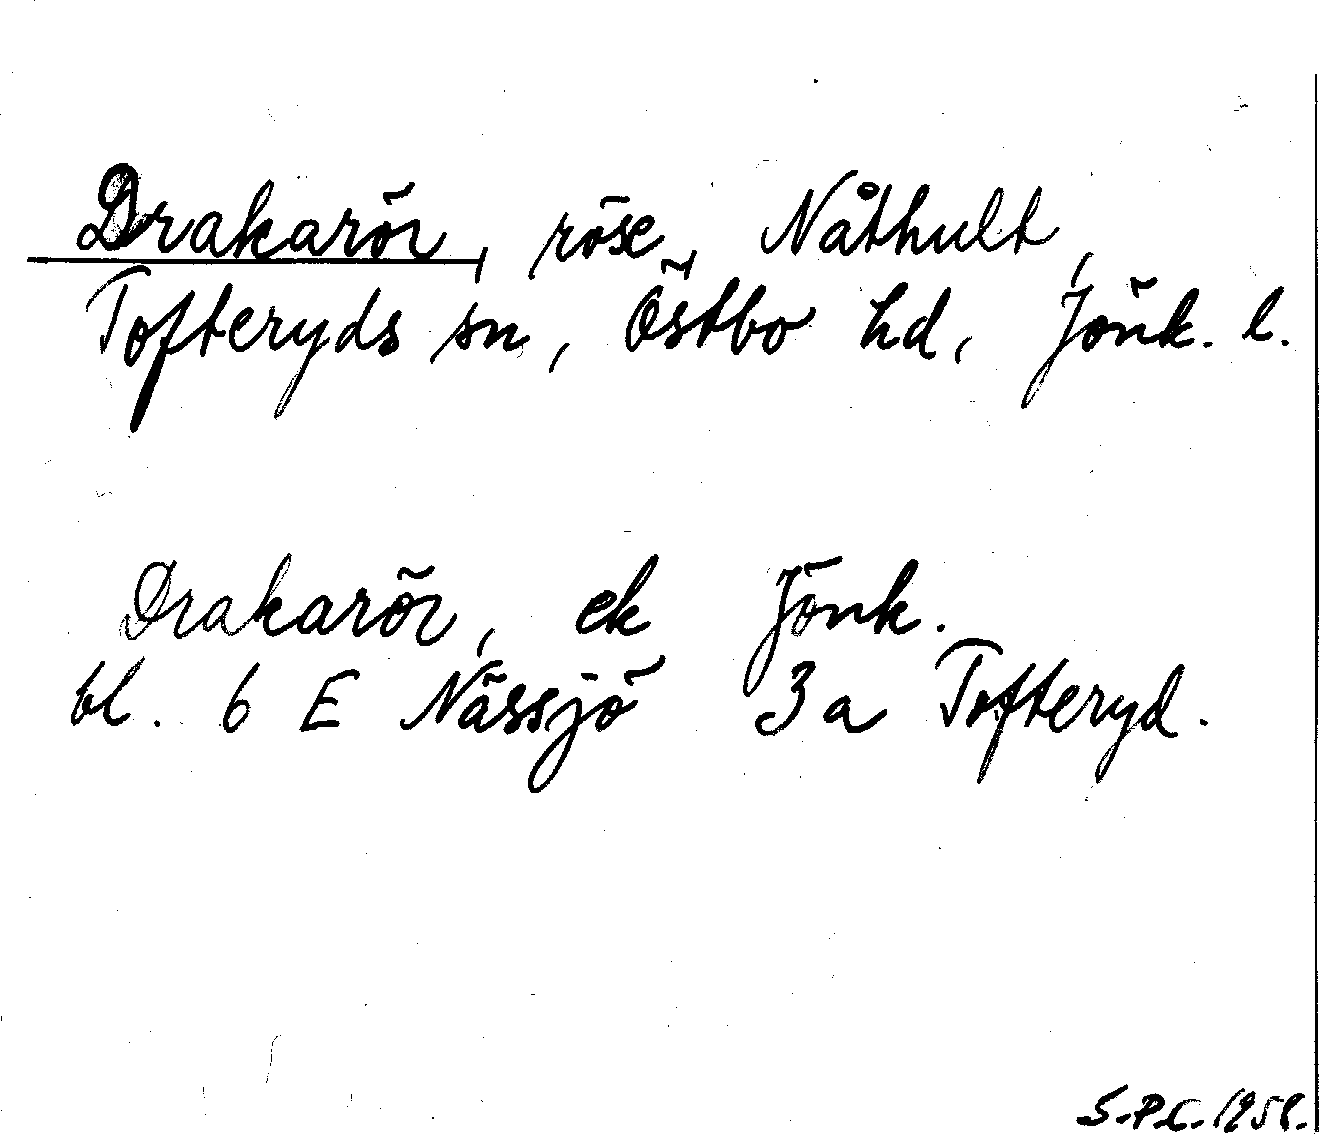 Drakarör, röse, Nåthult,
Tofteryds sn, Östbo hd, Jönk. l.
Drakarör, ek Jönk.
bl. 6 E Nässjö 3 a Tofteryd.
S.P.C.